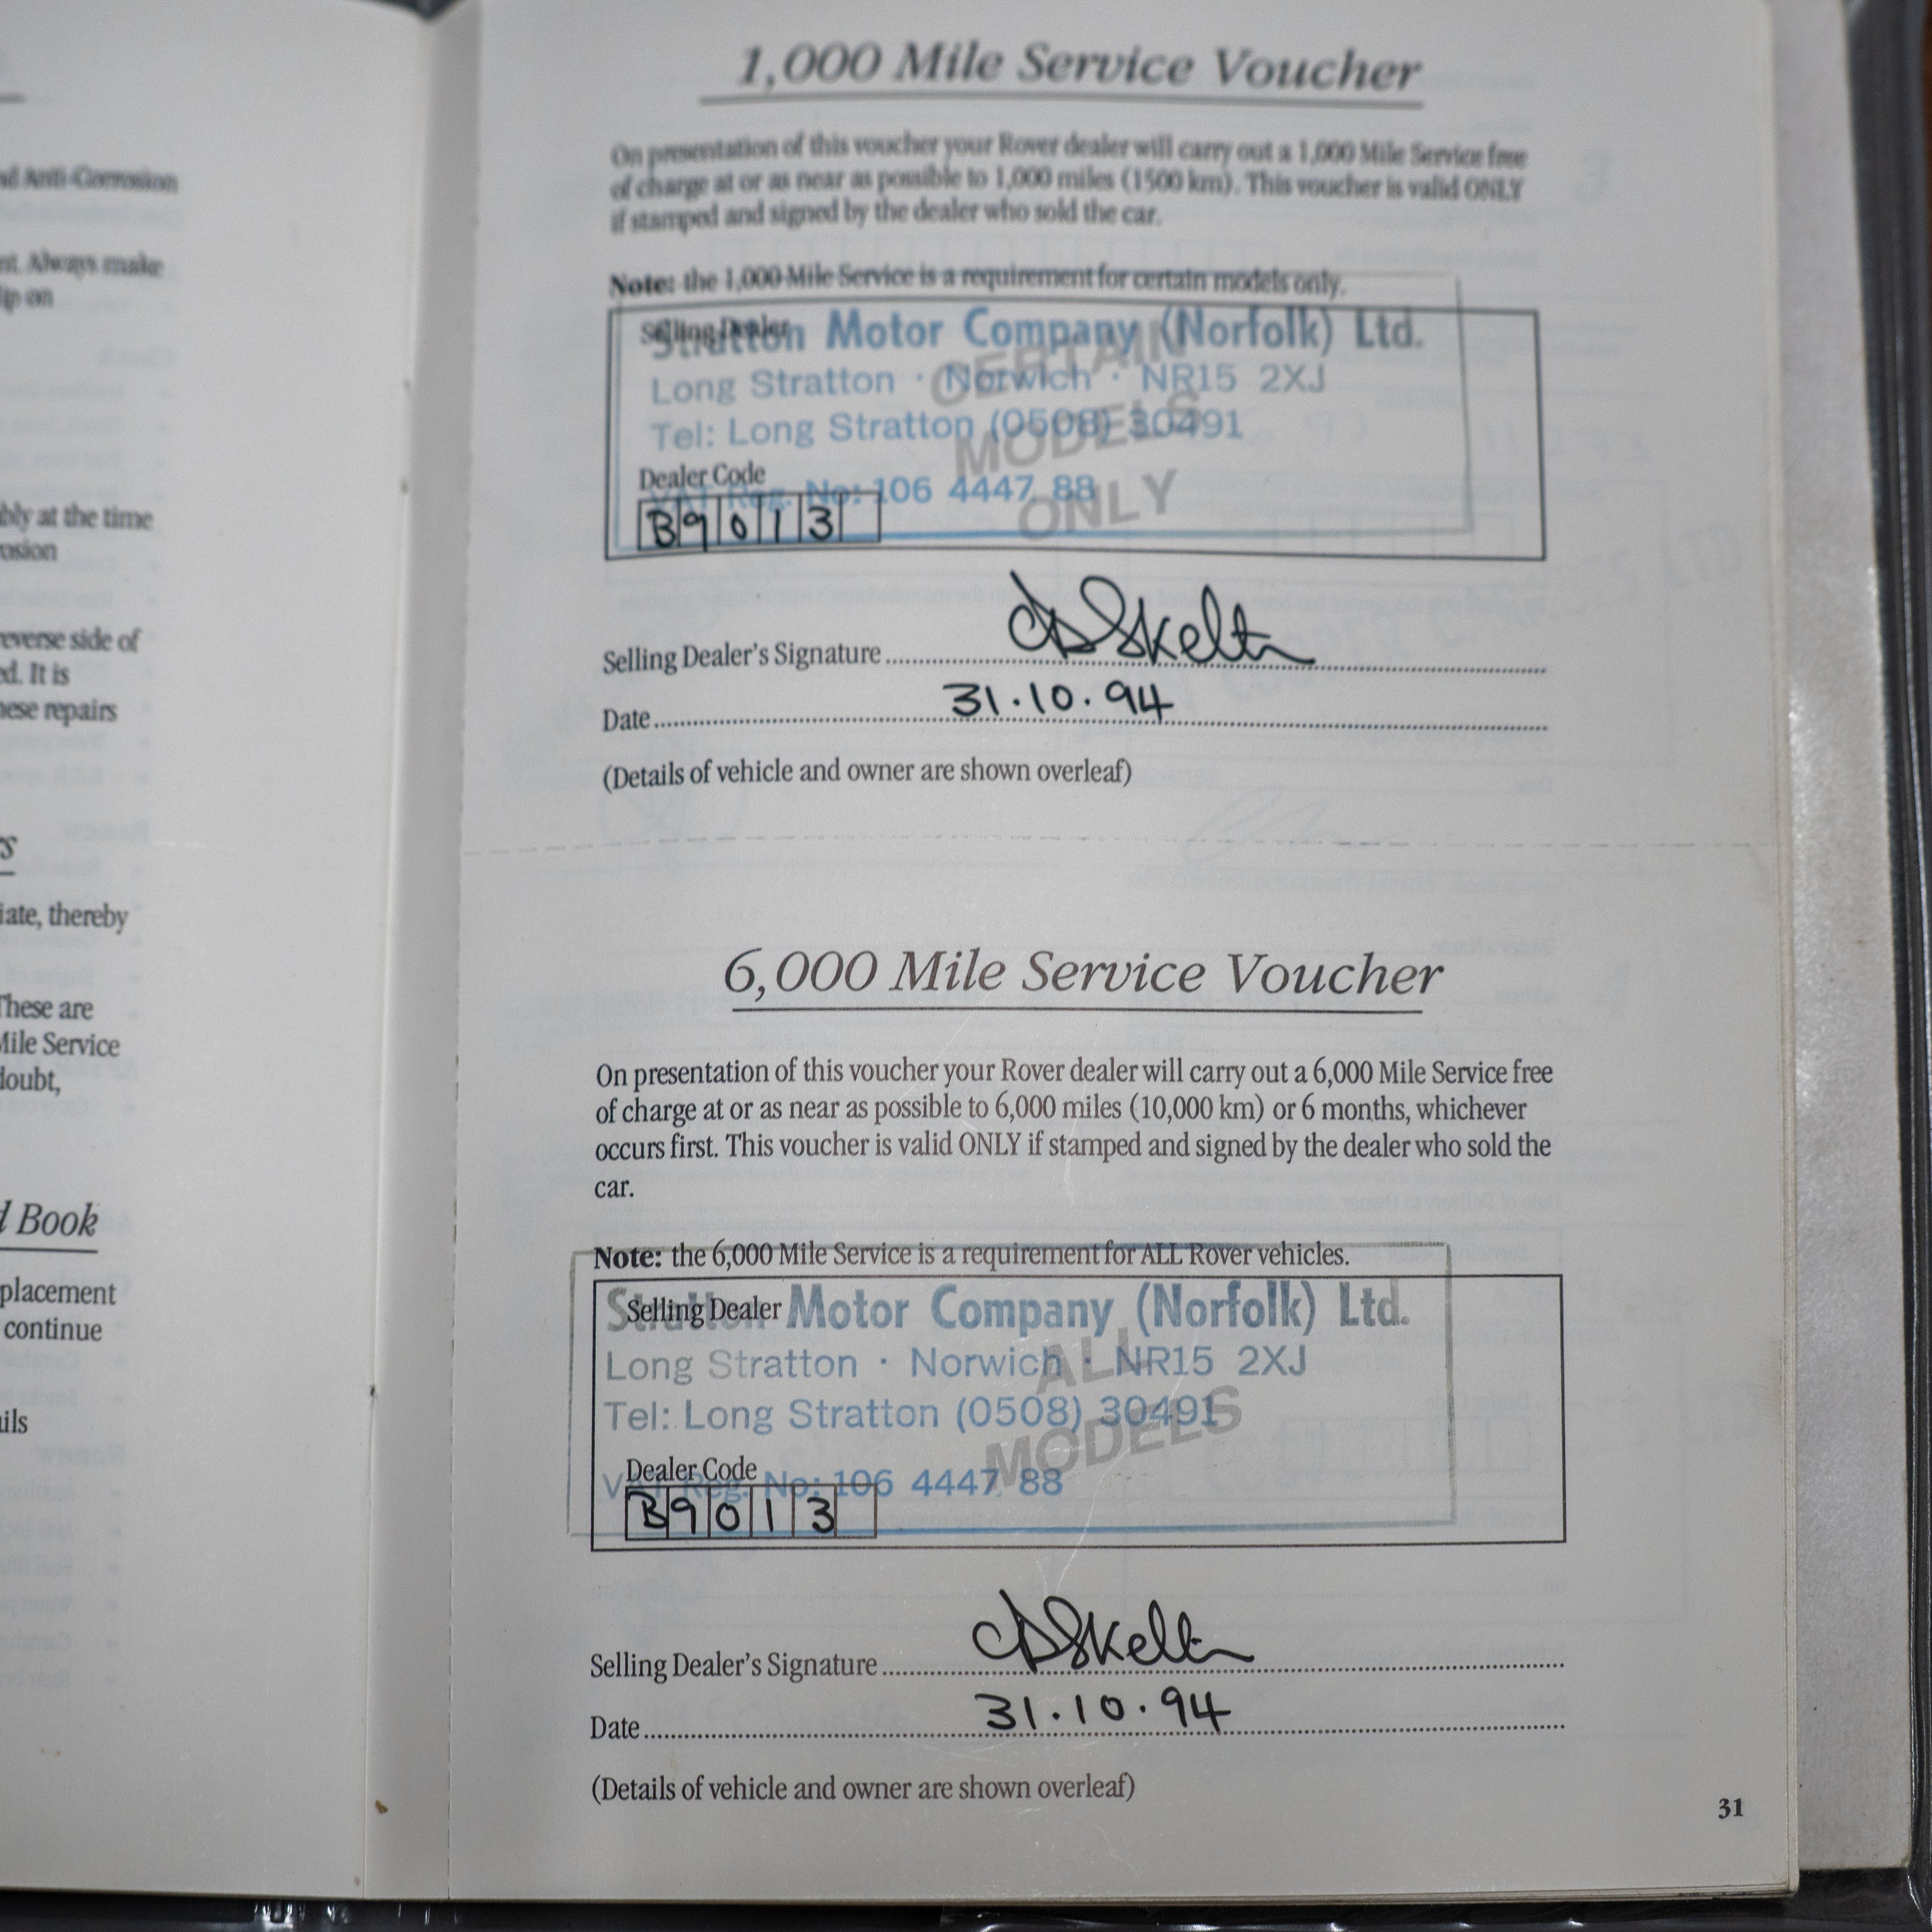 nd Anti-Corrosion
nt. Always make
lip on
bly at the time
rosion
reverse side of
ed. It is
hese repairs
rs
iate, thereby
These are
Mile Service
doubt,
d Book
placement
continue
ails
1,000 Mile Service Voucher
On presentation of this voucher your Rover dealer will carry out a 1,000 Mile Service free
of charge at or as near as possible to 1,000 miles (1500 km). This voucher is valid ONLY
if stamped and signed by the dealer who sold the car.
Note: the 1,000 Mile Service is a requirement for certain models only.
Selling Dealer
Stratton Motor Company (Norfolk) Ltd.
Long Stratton · Norwich · NR15 2XJ
Tel: Long Stratton (0508) 30491
VAT Reg. No: 106 4447 88
CERTAIN
MODELS
ONLY
Dealer Code
B9013
Selling Dealer's Signature
Date 31.10.94
(Details of vehicle and owner are shown overleaf)
6,000 Mile Service Voucher
On presentation of this voucher your Rover dealer will carry out a 6,000 Mile Service free
of charge at or as near as possible to 6,000 miles (10,000 km) or 6 months, whichever
occurs first. This voucher is valid ONLY if stamped and signed by the dealer who sold the
car.
Note: the 6,000 Mile Service is a requirement for ALL Rover vehicles.
Selling Dealer
Stratton Motor Company (Norfolk) Ltd.
Long Stratton · Norwich · NR15 2XJ
Tel: Long Stratton (0508) 30491
VAT Reg. No: 106 4447 88
ALL
MODELS
Dealer Code
B9013
Selling Dealer's Signature
Date 31.10.94
(Details of vehicle and owner are shown overleaf)
31